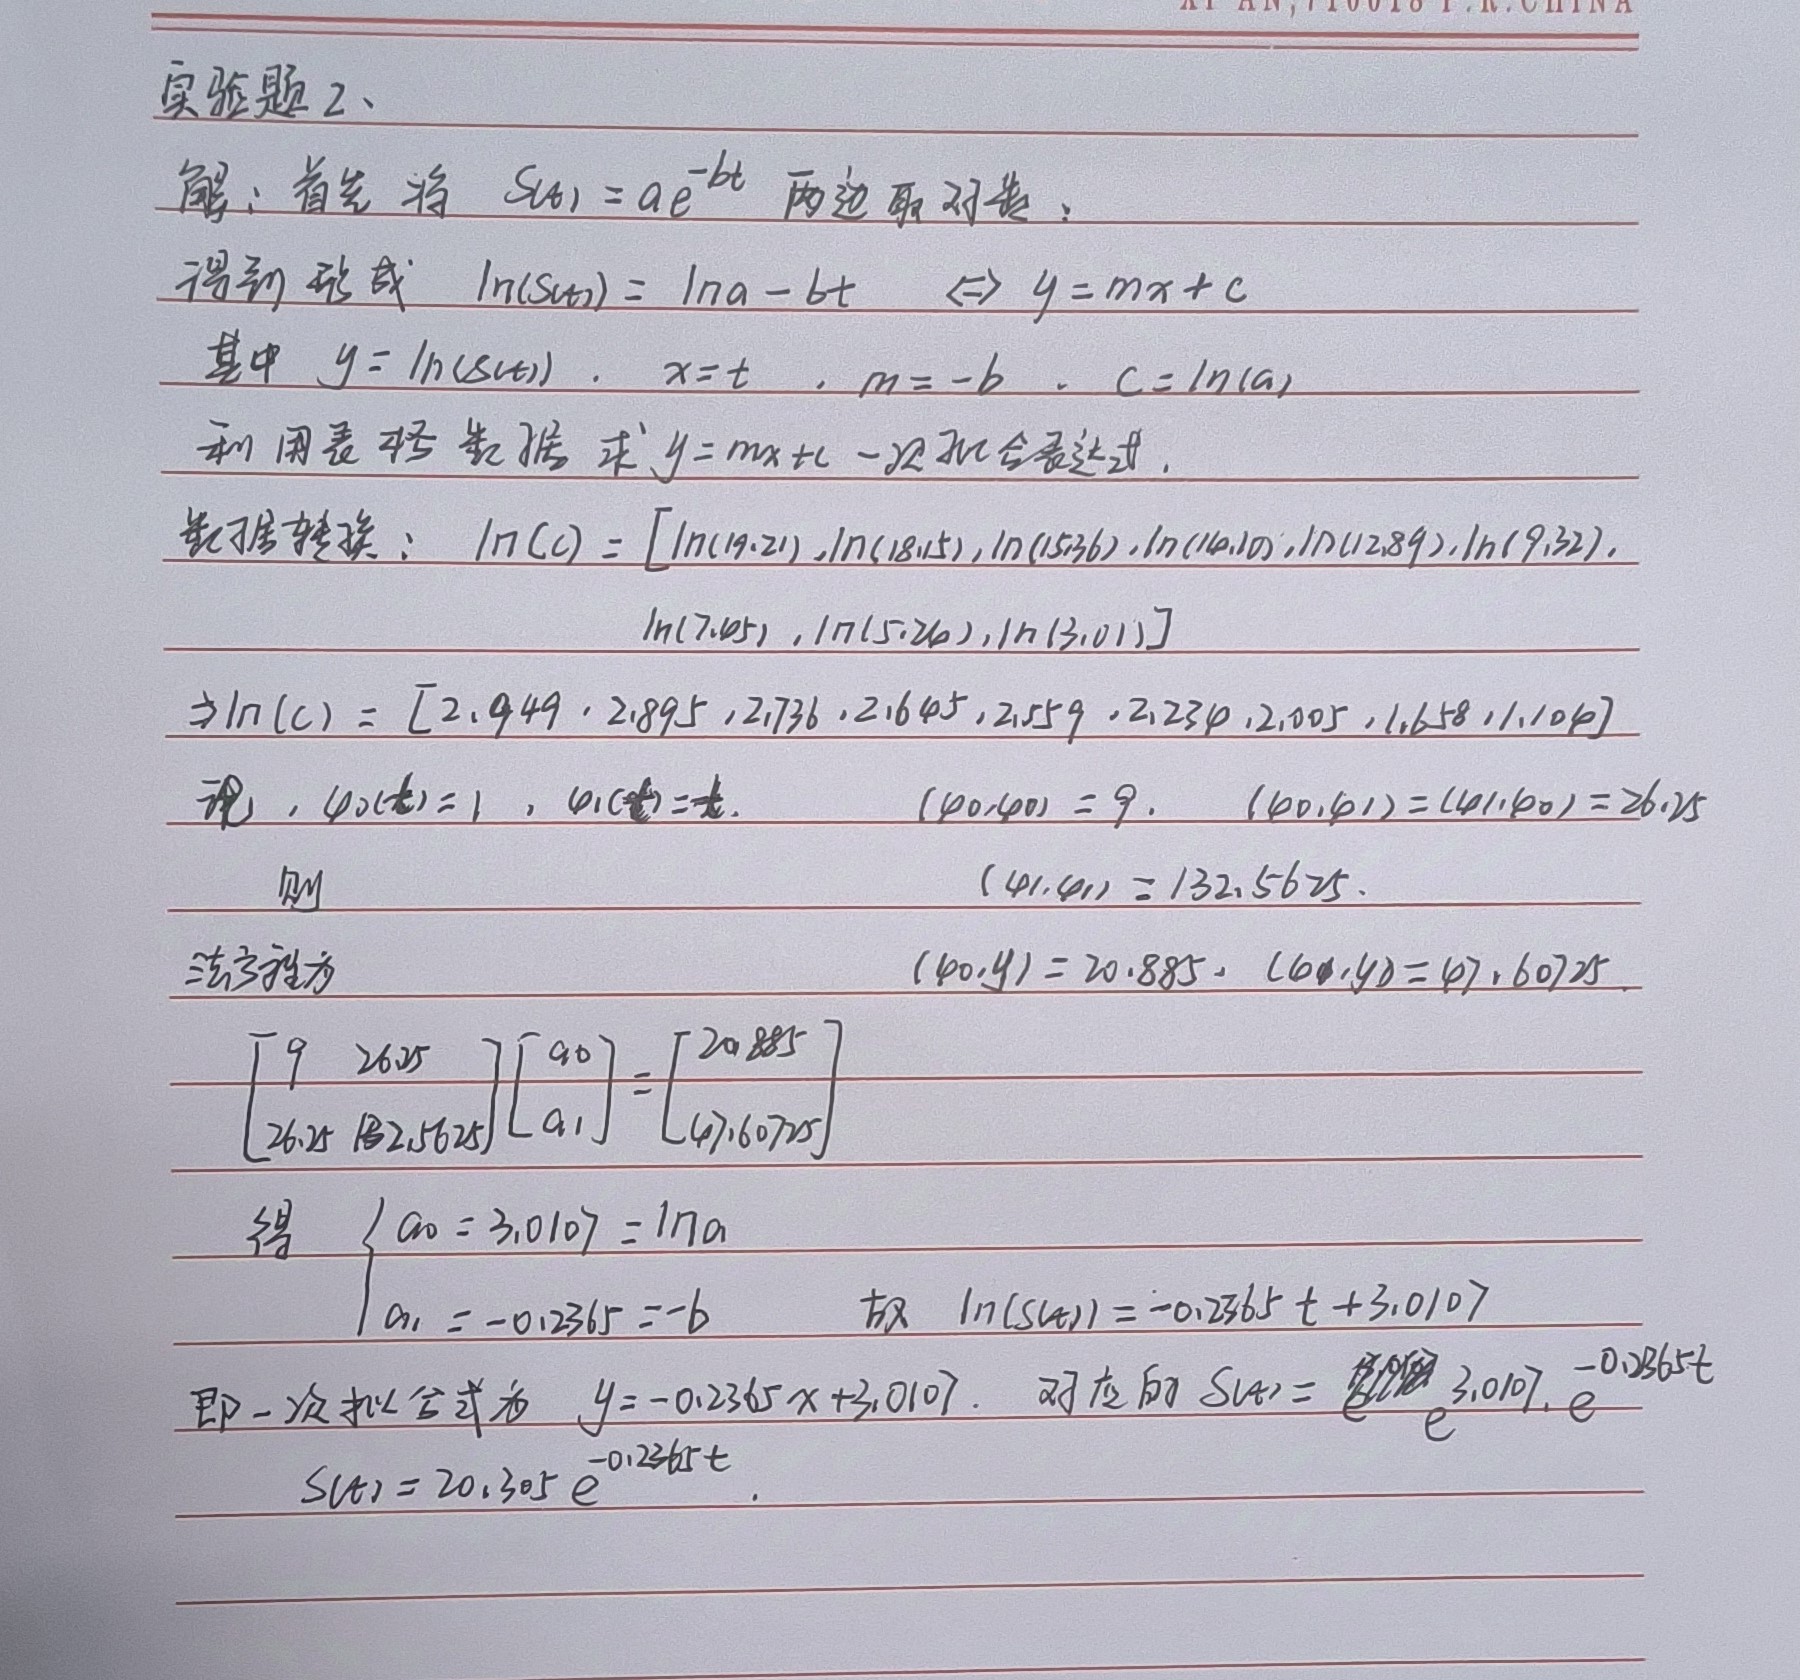 XI'AN, 710018 P.R.CHINA
实验题2、
解：首先将 S(t) = ae^{-bt} 两边取对数：
得到形式 ln(S(t)) = lna - bt <=> y = mx + c
其中 y = ln(S(t)) . x = t . m = -b . c = ln(a)
利用表格数据求 y = mx+c 一次拟合表达式.
数据转换： ln(c) = [ln(19.21), ln(18.15), ln(15.36), ln(14.10), ln(12.89), ln(9.32),
ln(7.45), ln(5.24), ln(3.01)]
⇒ ln(c) = [2.949, 2.895, 2.736, 2.645, 2.559, 2.234, 2.005, 1.658, 1.104]
φ0(t) = 1 , φ1(t) = t. (φ0,φ0) = 9. (φ0,φ1) = (φ1,φ0) = 26.25
则 (φ1,φ1) = 132.5625.
法方程为 (φ0,y) = 20.885. (φ1,y) = 47.60725.
[9 26.25; 26.25 132.5625] [a0; a1] = [20.885; 47.60725]
得 { a0 = 3.0107 = lna
a1 = -0.2365 = -b 故 ln(S(t)) = -0.2365t + 3.0107
即一次拟合式为 y = -0.2365x + 3.0107. 对应的 S(t) = e^{3.0107} . e^{-0.2365t}
S(t) = 20.305 e^{-0.2365t} .